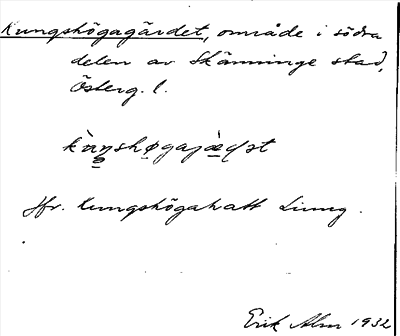 Kungshögagärdet, område i södra
delen av Skänninge stad,
Österg. l.
Jfr. kungshögahatt
Erik Alm 1932